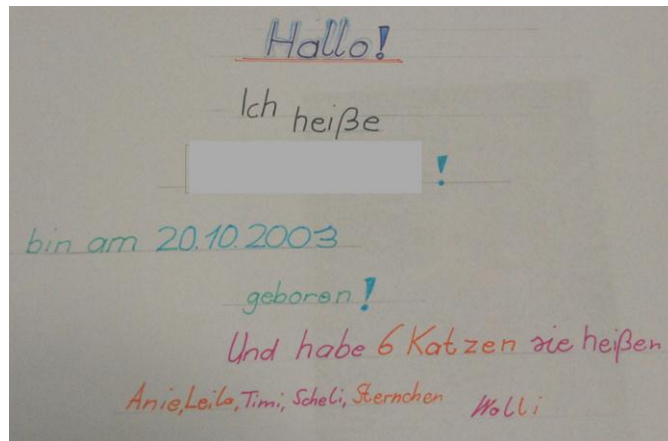 Hallo!
Ich heiße
!
bin am 20.10.2003
geboren!
Und habe 6 Katzen sie heißen
Anie, Leila, Timi, Scheli, Sternchen Wolli